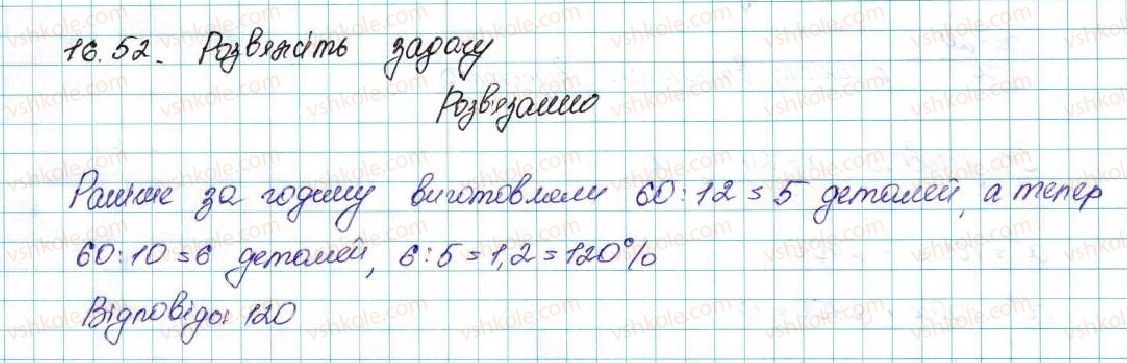 16.52. Розвяжіть задачу
Розв'язання
Раніше за годину виготовляли 60:12=5 деталей, а тепер
60:10=6 деталей, 6:5=1,2=120%
Відповідь: 120